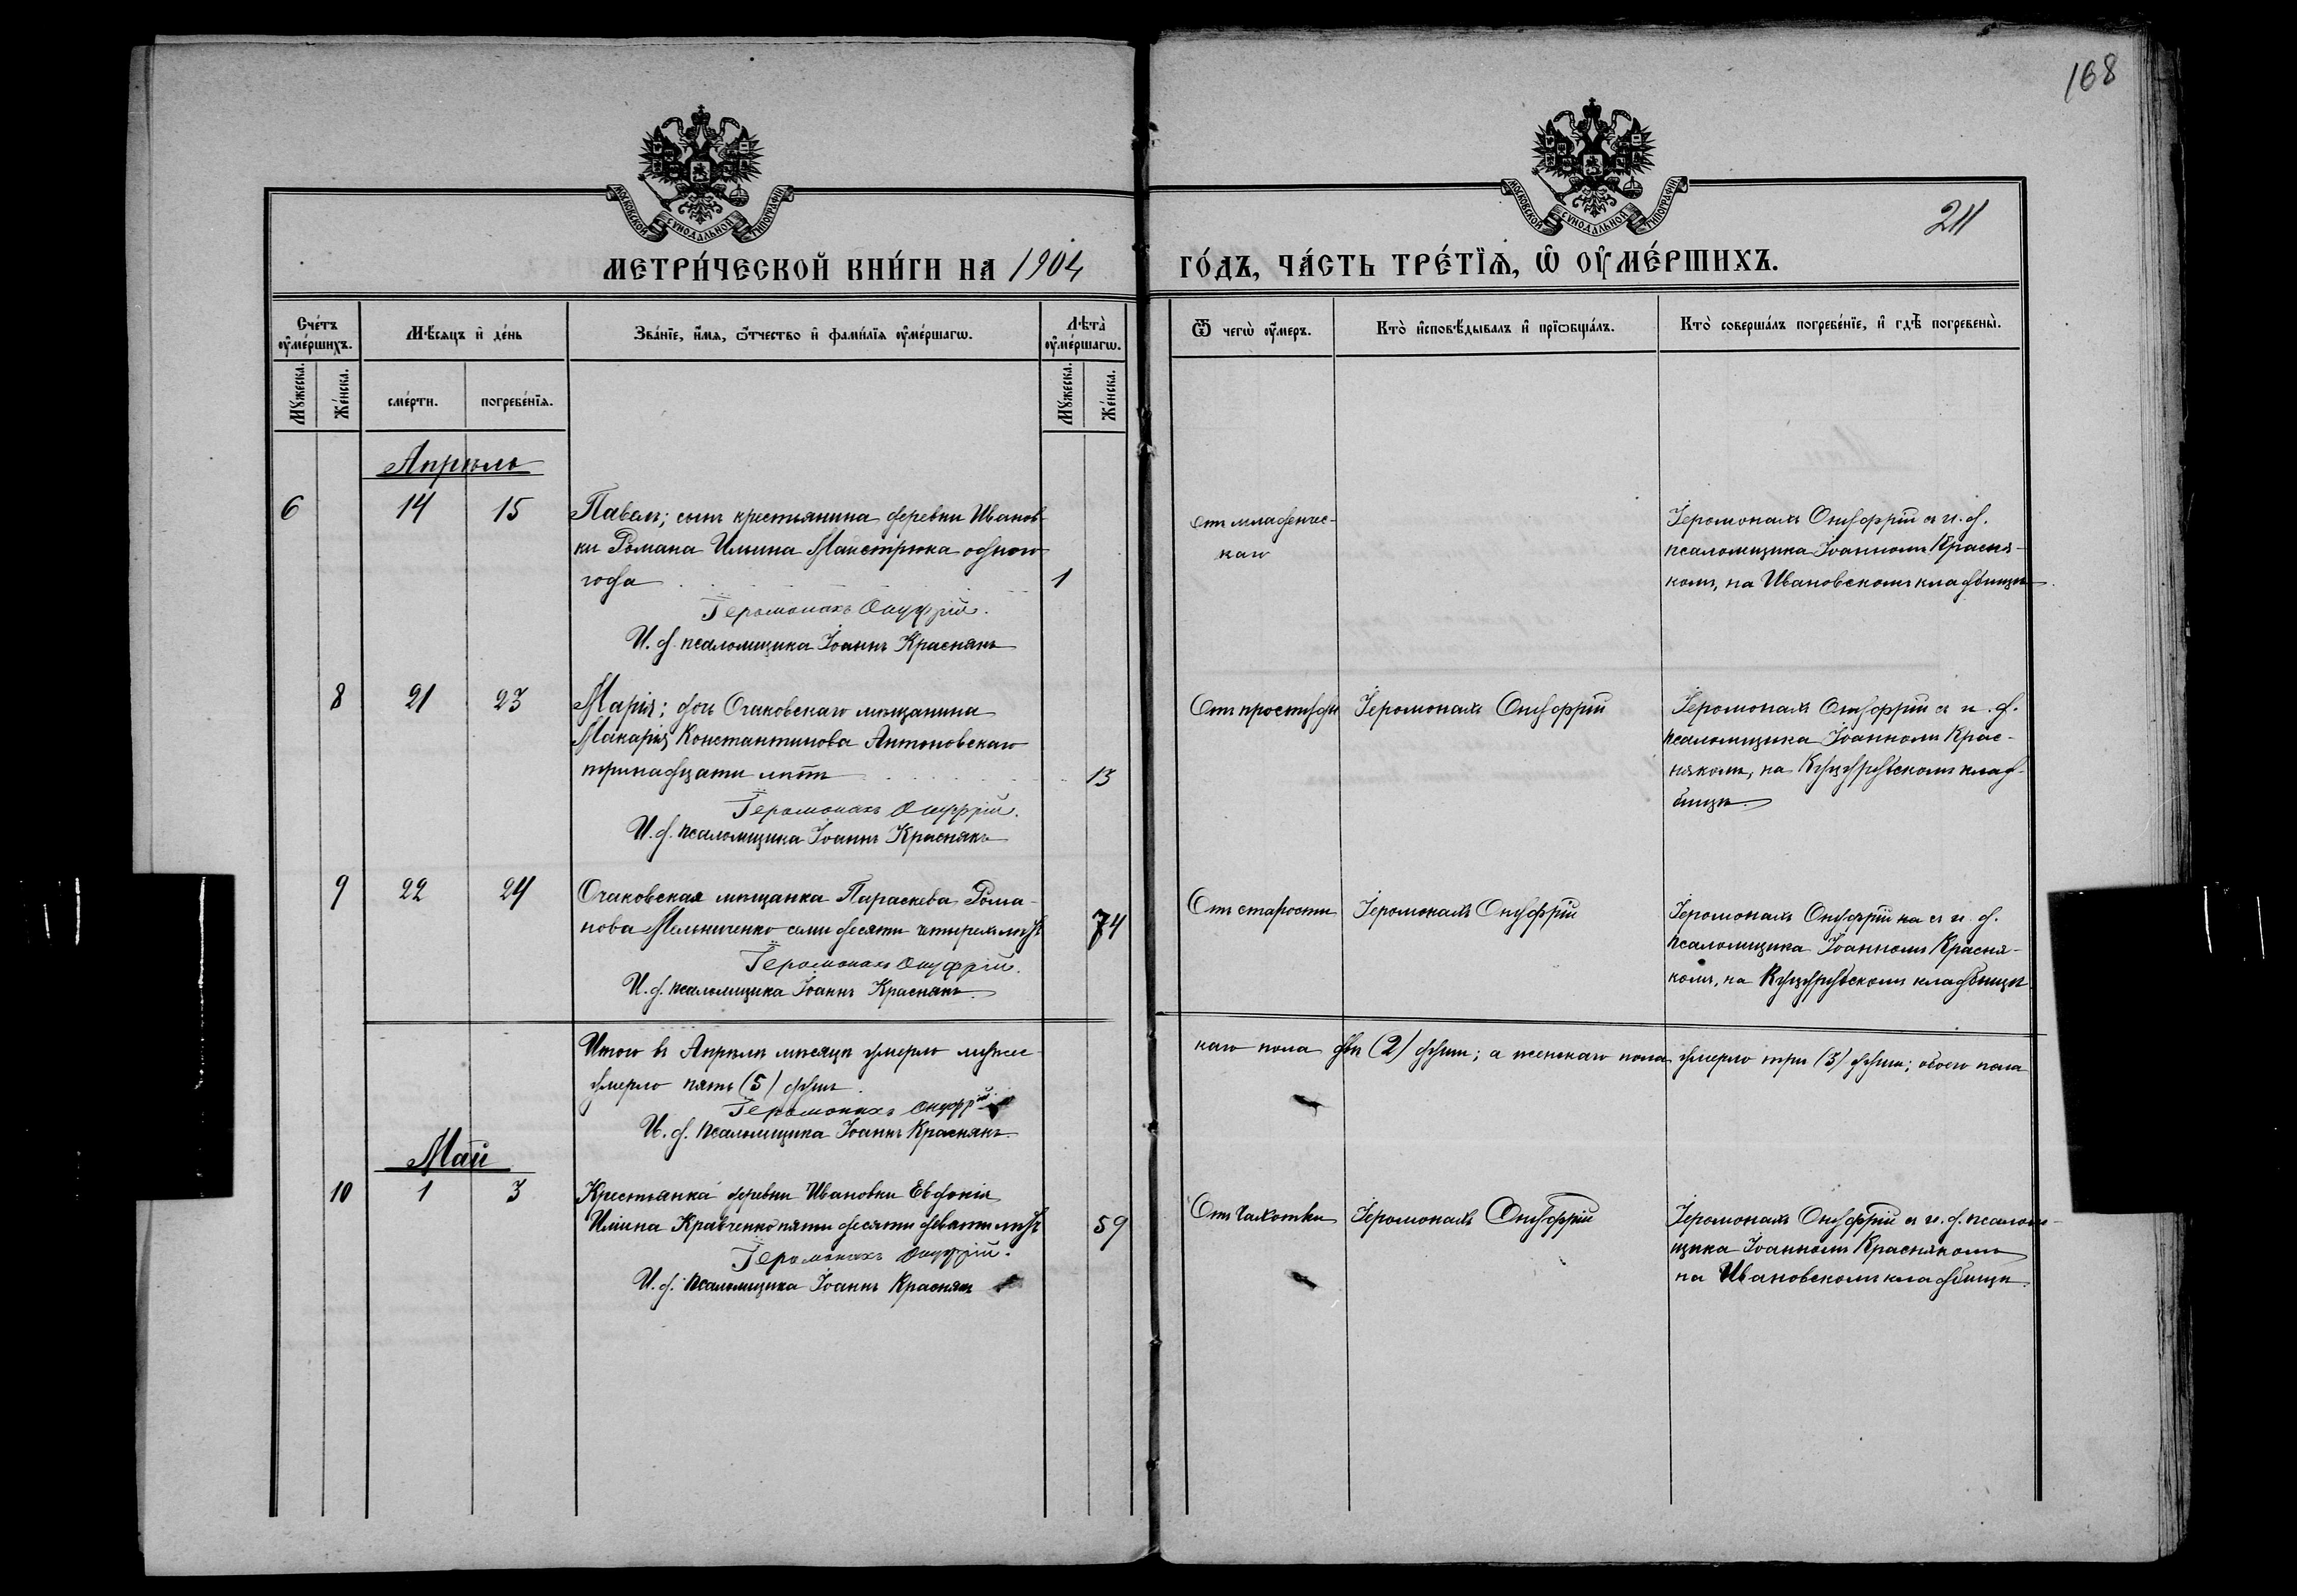 168
211
МОСКОВСКОЙ СѴНОДАЛЬНОЙ ТИПОГРАФІИ
МОСКОВСКОЙ СѴНОДАЛЬНОЙ ТИПОГРАФІИ
МЕТРИ́ЧЕСКОЙ КНИ́ГИ НА 1904 ГО́ДЪ, ЧА́СТЬ ТРЕ́ТЇѦ, Ѡ҆ ОУ҆МЕ́РШИХЪ.
Сче́тъ оу҆ме́ршихъ.
Мѣ́сяцъ и҆ де́нь
Зва́нїе, и҆́мя, ѻ҆́тчество и҆ фами́лїя оу҆ме́ршагѡ.
Лѣта̀ оу҆ме́ршагѡ.
Ѿ чегѡ̀ оу҆́меръ.
Кто̀ и҆сповѣ́дывалъ и҆ прїѡбща́лъ.
Кто̀ соверша́лъ погребе́нїе, и҆ гдѣ̀ погребены̀.
Мꙋ́жеска.
Же́нска.
сме́рти.
погребе́нїя.
Мꙋ́жеска.
Же́нска.
Апрѣль
6 14 15 Павелъ; сынъ крестьянина деревни Иванов-
ки Романа Ильина Майстрюка одного
года 1
Іеромонахъ Онуфрій.
И. д. псаломщика Іоаннъ Краснякъ
Отъ младенчес-
каго
Іеромонахъ Онуфрій съ и. д.
псаломщика Іоанномъ Красня-
комъ, на Ивановскомъ кладбищѣ
8 21 23 Марія; дочь Очаковскаго мѣщанина
Макарія Константинова Антоновскаго
тринадцати лѣтъ 13
Іеромонахъ Онуфрій.
И. д. псаломщика Іоаннъ Краснякъ
Отъ простуды
Іеромонахъ Онуфрій
Іеромонахъ Онуфрій съ и. д.
псаломщика Іоанномъ Крас-
някомъ, на Куцурубскомъ клад-
бищѣ.
9 22 24 Очаковская мѣщанка Параскева Рома-
нова Мельниченко семидесяти четырехъ лѣтъ 74
Іеромонахъ Онуфрій.
И. д. псаломщика Іоаннъ Краснякъ.
Отъ старости
Іеромонахъ Онуфрій
Іеромонахъ Онуфрій съ и. д.
псаломщика Іоанномъ Красня-
комъ, на Куцурубскомъ кладбищѣ
Итого въ Апрѣлѣ мѣсяцѣ умерло мужес-
каго пола двѣ (2) души; а женскаго пола умерло три (3) души; обоего пола
умерло пять (5) душъ.
Іеромонахъ Онуфрій
И. д. псаломщика Іоаннъ Краснякъ.
Май
10 1 3 Крестьянка деревни Ивановки Евдокія
Ильина Кравченко пятидесяти девяти лѣтъ 59
Іеромонахъ Онуфрій.
И. д. псаломщика Іоаннъ Краснякъ
Отъ чахотки
Іеромонахъ Онуфрій
Іеромонахъ Онуфрій съ и. д. псалом-
щика Іоанномъ Краснякомъ
на Ивановскомъ кладбищѣ.